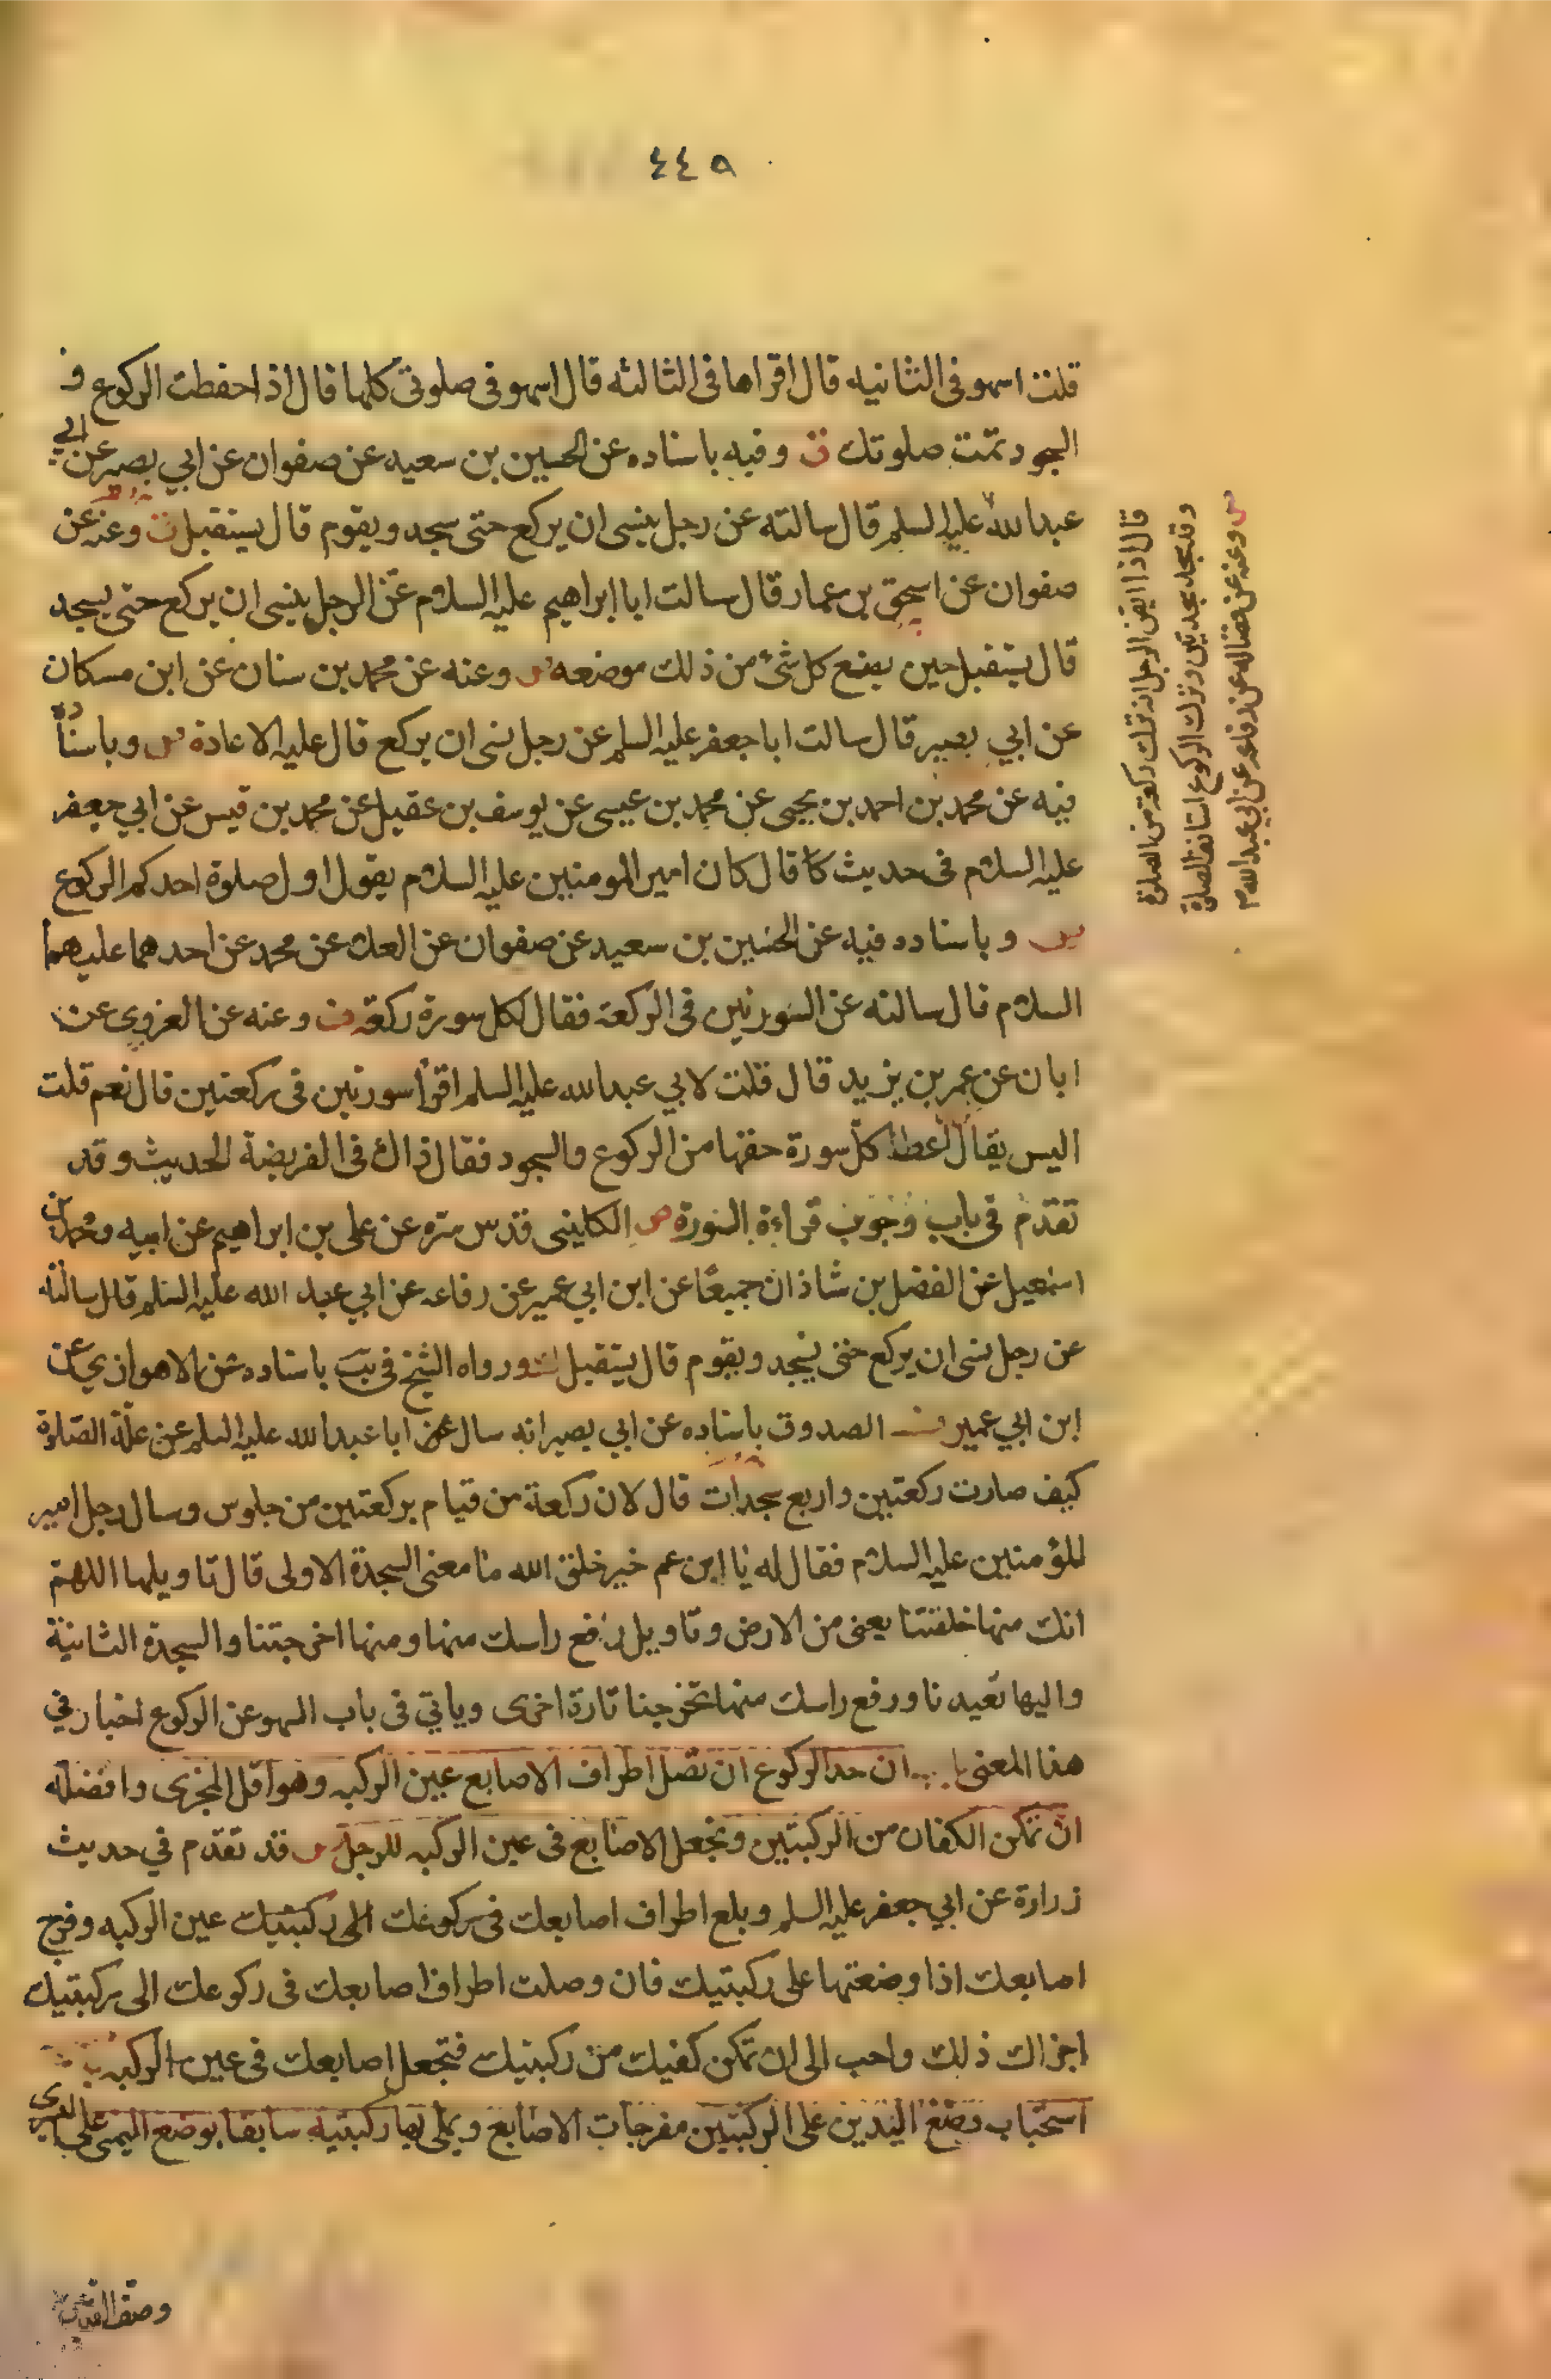 ٤٤٥
قلت اسهو فى الثانيه قال اقراها فى الثالثه قال اسهو فى صلوتى كلها قال اذا حفظت الركوع و
السجود تمت صلوتك وفيه باسناده عن الحسين بن سعيد عن صفوان عن ابي بصير عن ابي
عبدالله عليه السلم قال سالته عن رجل ينسى ان يركع حتى يسجد ويقوم قال يستقبل وعنه عن
صفوان عن اسحق بن عمار قال سالت ابا ابراهيم عليه السلام عن الرجل ينسى ان يركع حتى يسجد
قال يستقبل حين يضع كل شئ من ذلك موضعه وعنه عن محمد بن سنان عن ابن مسكان
عن ابي بصير قال سالت ابا جعفر عليه السلم عن رجل نسى ان يركع قال عليه الاعادة وباسناده
فيه عن محمد بن احمد بن يحيى عن محمد بن عيسى عن يوسف بن عقيل عن محمد بن قيس عن ابي جعفر
عليه السلام فى حديث قال كان امير المومنين عليه السلام يقول اول صلوة احدكم الركوع
وباسناده فيه عن الحسين بن سعيد عن صفوان عن العلا عن محمد عن احدهما عليهما
السلام قال سالته عن السورتين فى الركعة فقال لكل سورة ركعة وعنه عن القروى عن
ابان عن عمر بن يزيد قال قلت لابي عبدالله عليه السلم اقرأ سورتين فى ركعتين قال نعم قلت
اليس يقال اعط كل سورة حقها من الركوع والسجود فقال ذاك فى الفريضة الحديث وقد
تقدم فى باب وجوب قراءة السورة الكلينى قدس سره عن على بن ابراهيم عن ابيه ومحمد بن
اسمعيل عن الفضل بن شاذان جميعًا عن ابن ابي عمير عن رفاعه عن ابي عبد الله عليه السلم قال سالته
عن رجل نسى ان يركع حتى يسجد ويقوم قال يستقبل ورواه الشيخ فى يب باسناده عن الاهوازي عن
ابن ابي عمير الصدوق باسناده عن ابي بصير انه سال ابا عبدالله عليه السلم عن علة الصلوة
كيف صارت ركعتين واربع سجدات قال لان ركعة من قيام بركعتين من جلوس وسال رجل امير
المؤمنين عليه السلام فقال له يا ابن عم خير خلق الله ما معنى السجدة الاولى قال تاويلها اللهم
انك منها خلقتنا يعنى من الارض وتاويل رفع راسك منها ومنها اخرجتنا والسجدة الثانية
واليها تعيدنا ورفع راسك منها تخرجنا تارة اخرى وياتي فى باب السهو عن الركوع اخبار في
هذا المعنى ان حد الركوع ان تصل اطراف الاصابع عين الركبه وهو اقل المجزى وافضله
ان تمكن الكفان من الركبتين وتجعل الاصابع فى عين الركبه للرجل قد تقدم في حديث
زرارة عن ابي جعفر عليه السلم وبلع اطراف اصابعك فى ركوعك الى ركبتيك عين الركبه وفرج
اصابعك اذا وضعتها على ركبتيك فان وصلت اطراف اصابعك فى ركوعك الى ركبتيك
اجزاك ذلك واحب الى ان تمكن كفيك من ركبتيك فتجعل اصابعك فى عين الركبه
استحباب وضع اليدين على الركبتين مفرجات الاصابع ويملى بها ركبتيه سابقا بوضع اليمنى على اليسرى
وعنه عن فضاله عن رفاعه عن ابي عبدالله م
قال اذا ايقن الرجل انه ترك ركعة من الصلوة
وقد سجد سجدتين وترك الركوع استانف الصلوة